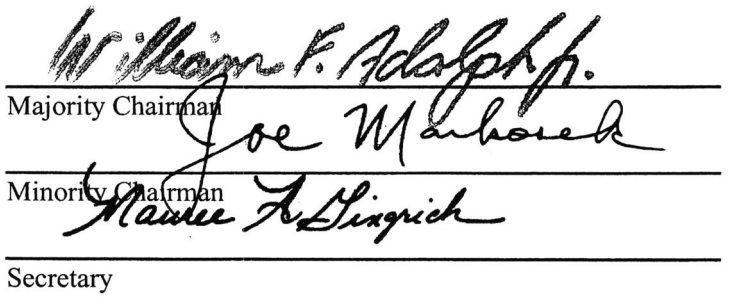 William F. Adolph Jr.
Majority Chairman
Joe Markosek
Minority Chairman
Mauree A Gingrich
Secretary